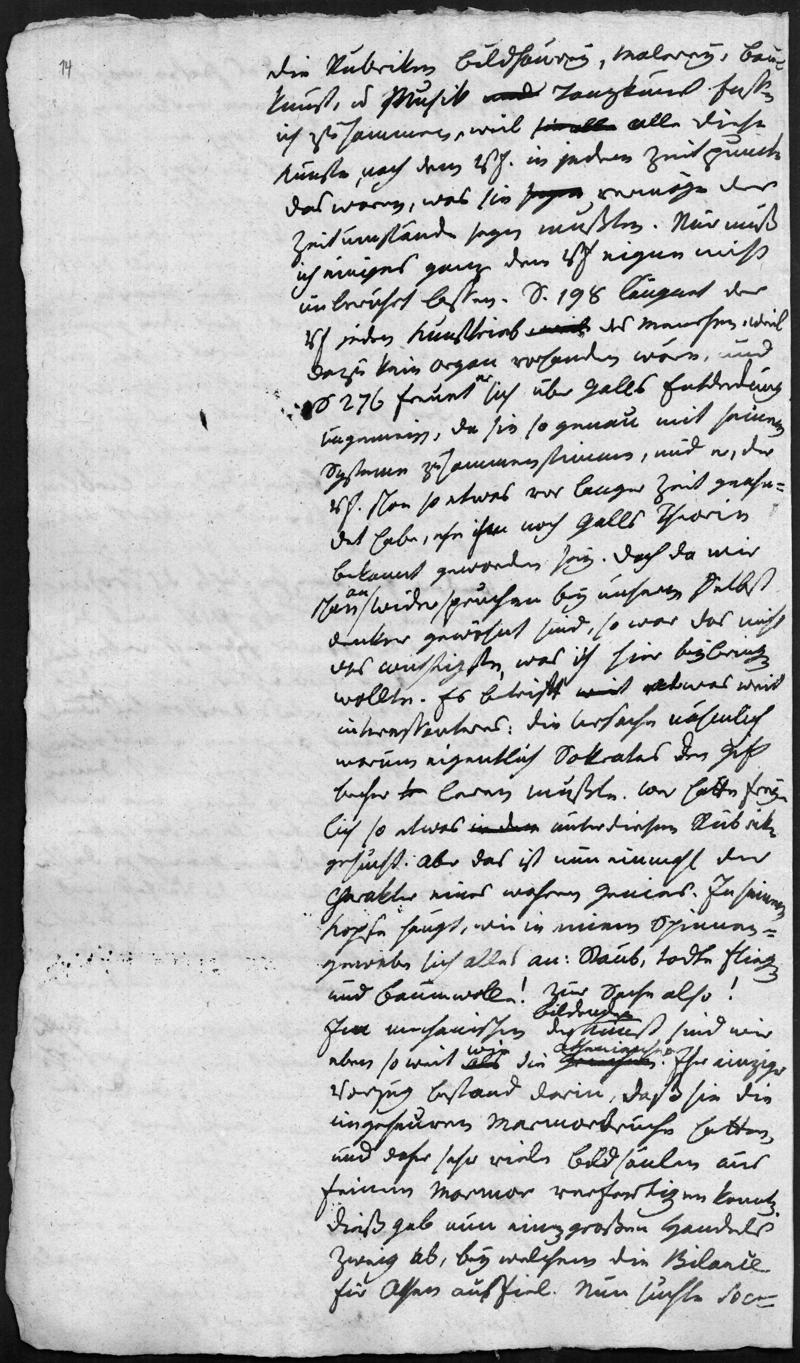 14
die Rubriken Bildhauerey, Malerey, Bau-
kunst, u Musik und Tanzkunst fasse
ich zusammen, weil sie alle alle diese
Künste, nach dem Vf. in jedem Zeitpunkte
das waren, was sie seyn, vermöge der
Zeitumstände seyn mußten. Nur muß
ich einiges ganz dem Vf eignes nicht
unberührt lassen. S. 198 läugnet der
Vf jeden Kunsttrieb des Menschen, weil
dazu kein Organ vorhanden wäre, und
S 276 freuet er sich über Galls Entdeckung
ungemein, da sie so genau mit seinem
Systeme zusammenstimme, und er, der
Vf. schon so etwas vor langer Zeit geahn=
det habe, ehe ihm noch Galls Theorie
bekannt geworden sey. Doch da wir
schon an Widersprüchen bey unserm Selbst
denker gewöhnt sind, so war das nicht
das wichtigste, was ich hier beybringen
wollte. Es betrifft etwas weit
interessanteres: die Ursache nähmlich
warum eigentlich Sokrates den Gift
becher leeren mußte. Wer hätte frey-
lich so etwas in dem unter diesen Rubriken
gesucht. Aber das ist nun einmahl der
Charakter eines wahren Genies. In seinem
Kopfe hängt, wie in einem Spinnen=
gewebe sich alles an: Staub, todte Fliegen
und Baumwolle! Zur Sache also!
Im mechanischen der bildenden Kunst sind wir
eben so weit als wie die Griechen atheniensischen. Ihr einziger
Vorzug bestand darin, daß sie die
ungeheuren Marmorbrüche hatten,
und daher sehr viele Bildsäulen aus
feinem Marmor verfertigen konnten.
Dieß gab nun einen großen Handels
zweig ab, bey welchem die Bilance
für Athen ausfiel. Nun suchte Socr=